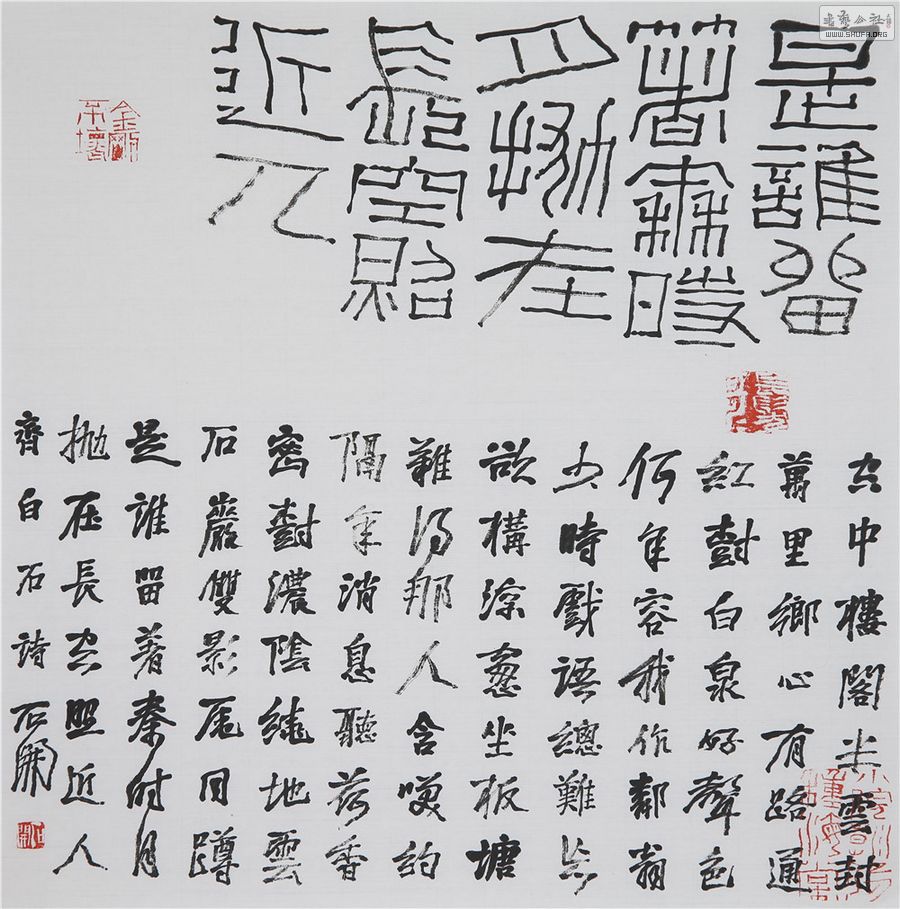 書藝公社
WWW.SHUFA.ORG
是誰留
著秦時
月拋在
長空照
近人
金剛不壞
空中樓閣半雲封
萬里鄉心有路通
紅樹白泉好聲色
何年容我作鄰翁
少時戲語總難忘
欲構深窻坐板塘
難得那人含笑約
隔年消息聽荷香
密樹濃陰繞地雲
石巖雙影尾同蹲
是誰留著秦時月
拋在長空照近人
齊白石詩 石開
石開